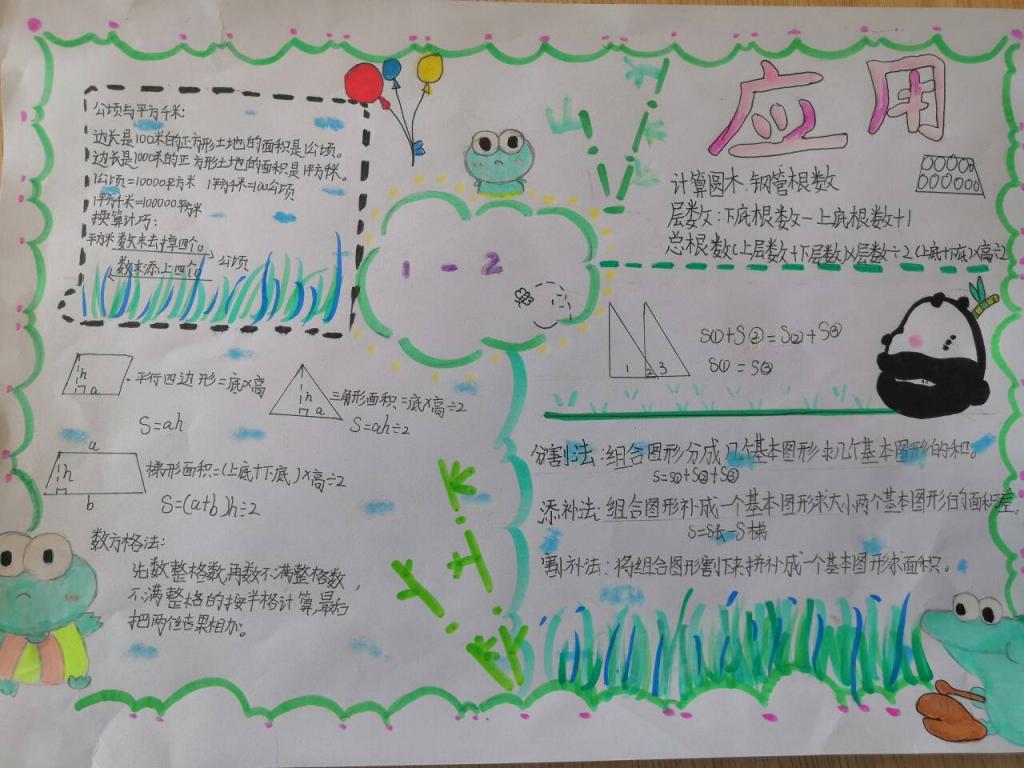 公顷与平方千米:
边长是100米的正方形土地的面积是1公顷。
边长是1000米的正方形土地的面积是1平方千米。
1公顷=10000平方米 1平方千米=100公顷
1平方千米=1000000平方米
换算计巧:
平方米 数末去掉四个0。 公顷
数末添上四个0
1-2
应用
计算圆木.钢管根数
层数:下底根数-上底根数+1
总根数(上层数+下层数)×层数÷2 (上底+下底)×高÷2
1 2 3
S①+S②=S②+S③
S①=S③
h a
平行四边形=底×高
S=ah
h a
三角形面积=底×高÷2
S=ah÷2
a
h
b
梯形面积=(上底+下底)×高÷2
S=(a+b)h÷2
数方格法:
先数整格数,再数不满整格数,
不满整格的按半格计算,最后
把两个结果相加。
分割法:组合图形分成几个基本图形求几个基本图形的和。
S=S①+S②+S③
添补法:组合图形补成一个基本图形求大小两个基本图形的面积差。
S=S长-S梯
割补法:将组合图形割下来拼补成一个基本图形求面积。